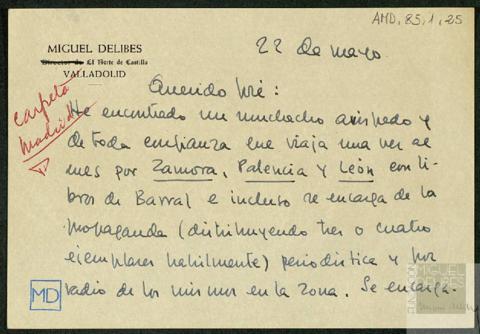 AMD, 85, 1, 25
MIGUEL DELIBES
Director de El Norte de Castilla
VALLADOLID
22 de mayo.
carpeta
Madrid
Querido José:
He encontrado un muchacho avispado y
de toda confianza que viaja una vez al
mes por Zamora, Palencia y León con li-
bros de Barral e incluso se encarga de la
propaganda (distribuyendo tres o cuatro
ejemplares habilmente) periodística y por
radio de los mismos en la zona. Se encarga-
MD
FUNDACIÓN
MIGUEL
DELIBES